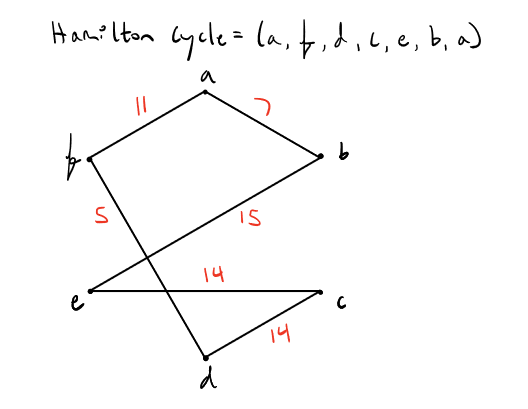 Hamilton cycle = (a, f, d, c, e, b, a)
a
11
7
f
b
5
15
14
e
c
14
d